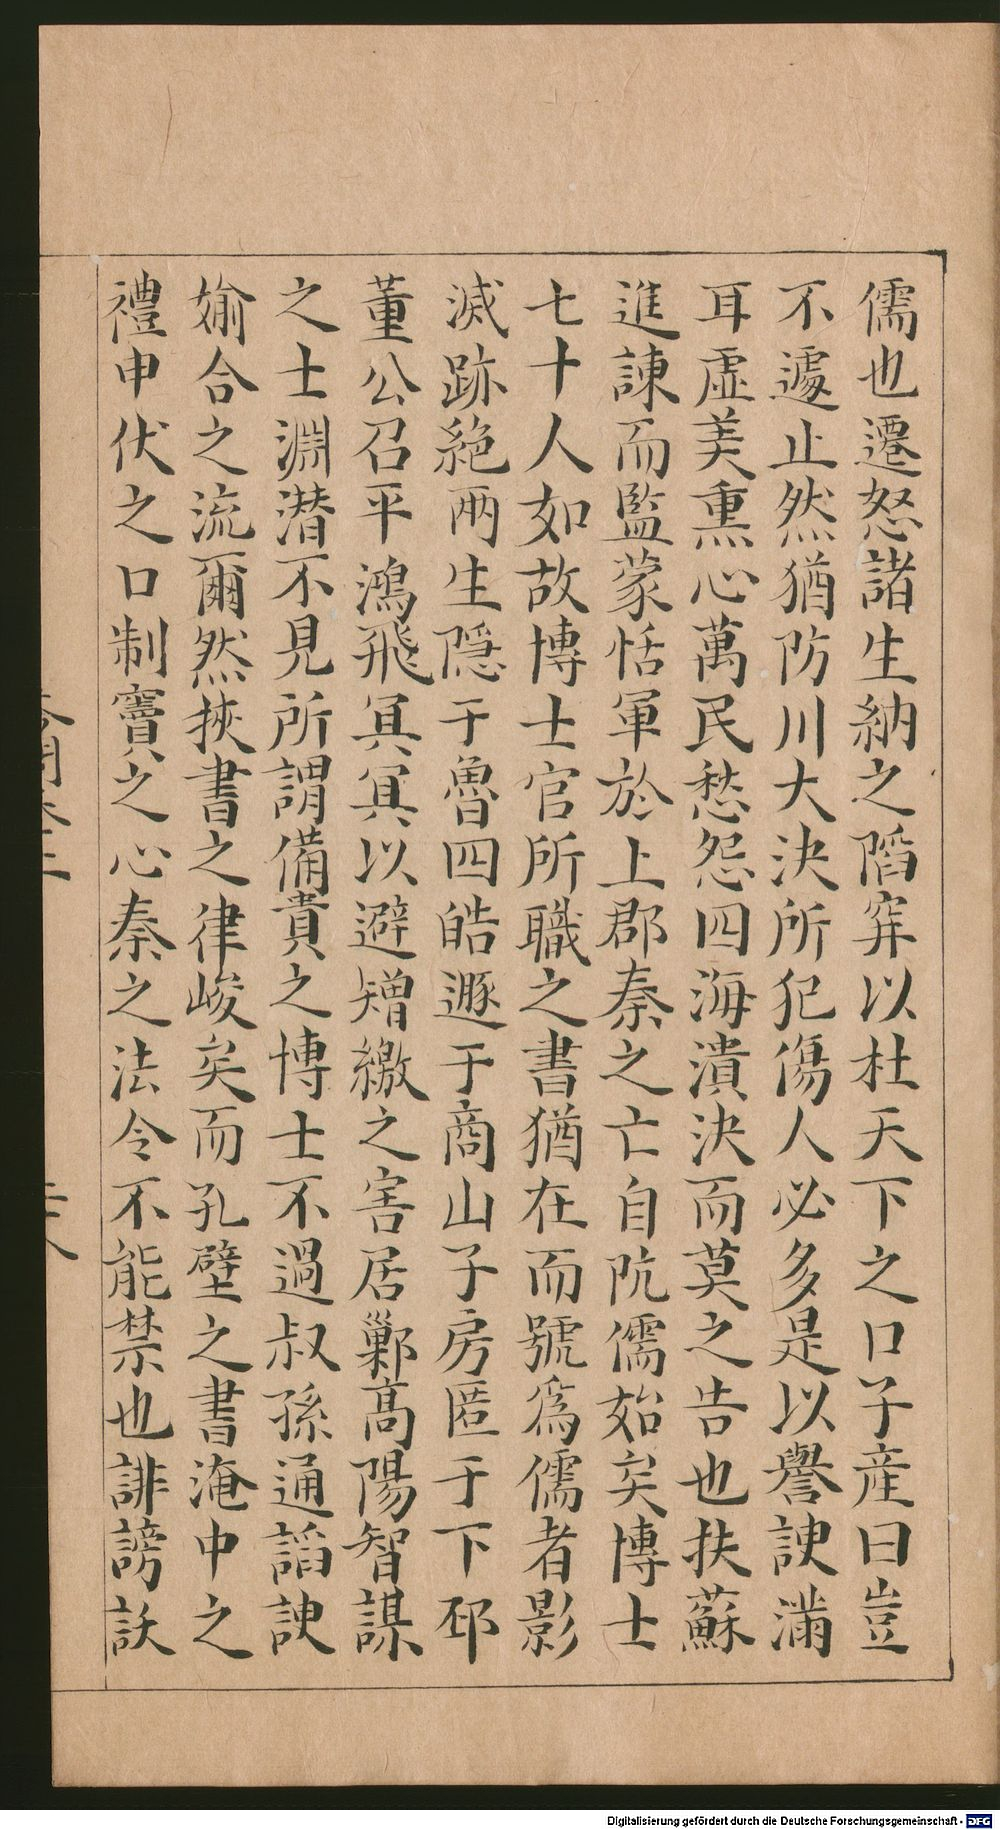 儒也遷怒諸生納之䧟穽以杜天下之口子産曰豈
不遽止然猶防川大決所犯傷人必多是以譽諛滿
耳虛美熏心萬民愁怨四海潰決而莫之告也扶蘇
進諫而監蒙恬軍於上郡秦之亡自阬儒始矣博士
七十人如故博士官所職之書猶在而號爲儒者影
滅跡絕兩生隱于魯四皓遯于商山子房匿于下邳
董公召平鴻飛冥冥以避矰繳之害居鄛高陽智謀
之士淵潜不見所謂備貴之博士不過叔孫通謟諛
婾合之流爾然挾書之律峻矣而孔壁之書淹中之
禮申伏之口制竇之心秦之法令不能禁也誹謗訞
Digitalisierung gefördert durch die Deutsche Forschungsgemeinschaft - DFG